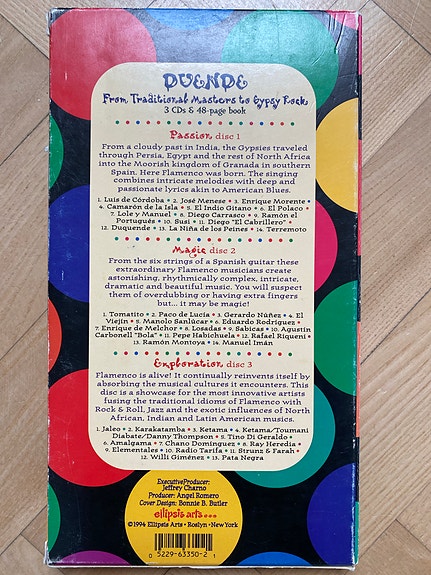 DUENDE
From Traditional Masters to Gypsy Rock
3 CDs & 48-page book
Passion disc 1
From a cloudy past in India, the Gypsies traveled
through Persia, Egypt and the rest of North Africa
into the Moorish kingdom of Granada in southern
Spain. Here Flamenco was born. The singing
combines intricate melodies with deep and
passionate lyrics akin to American Blues.
1. Luis de Córdoba • 2. José Menese • 3. Enrique Morente •
4. Camarón de la Isla • 5. El Indio Gitano • 6. El Polaco •
7. Lole y Manuel • 8. Diego Carrasco • 9. Ramón el
Portugués • 10. Susi • 11. Diego "El Cabrillero" •
12. Duquende • 13. La Niña de los Peines • 14. Terremoto
Magic disc 2
From the six strings of a Spanish guitar these
extraordinary Flamenco musicians create
astonishing, rhythmically complex, intricate,
dramatic and beautiful music. You will suspect
them of overdubbing or having extra fingers
but... it may be magic!
1. Tomatito • 2. Paco de Lucía • 3. Gerardo Núñez • 4. El
Viejín • 5. Manolo Sanlúcar • 6. Eduardo Rodríguez •
7. Enrique de Melchor • 8. Losadas • 9. Sabicas • 10. Agustín
Carbonell "Bola" • 11. Pepe Habichuela • 12. Rafael Riqueni •
13. Ramón Montoya • 14. Manuel Imán
Exploration disc 3
Flamenco is alive! It continually reinvents itself by
absorbing the musical cultures it encounters. This
disc is a showcase for the most innovative artists
fusing the traditional idioms of Flamenco with
Rock & Roll, Jazz and the exotic influences of North
African, Indian and Latin American musics.
1. Jaleo • 2. Karakatamba • 3. Ketama • 4. Ketama/Toumani
Diabate/Danny Thompson • 5. Tino Di Geraldo •
6. Amalgama • 7. Chano Domínguez • 8. Ray Heredia •
9. Elementales • 10. Radio Tarifa • 11. Strunz & Farah •
12. Willi Giménez • 13. Pata Negra
Executive Producer:
Jeffrey Charno
Producer: Angel Romero
Cover Design: Bonnie B. Butler
ellipsis arts...
©1994 Ellipsis Arts • Roslyn • New York
0 5229-63350-2 1